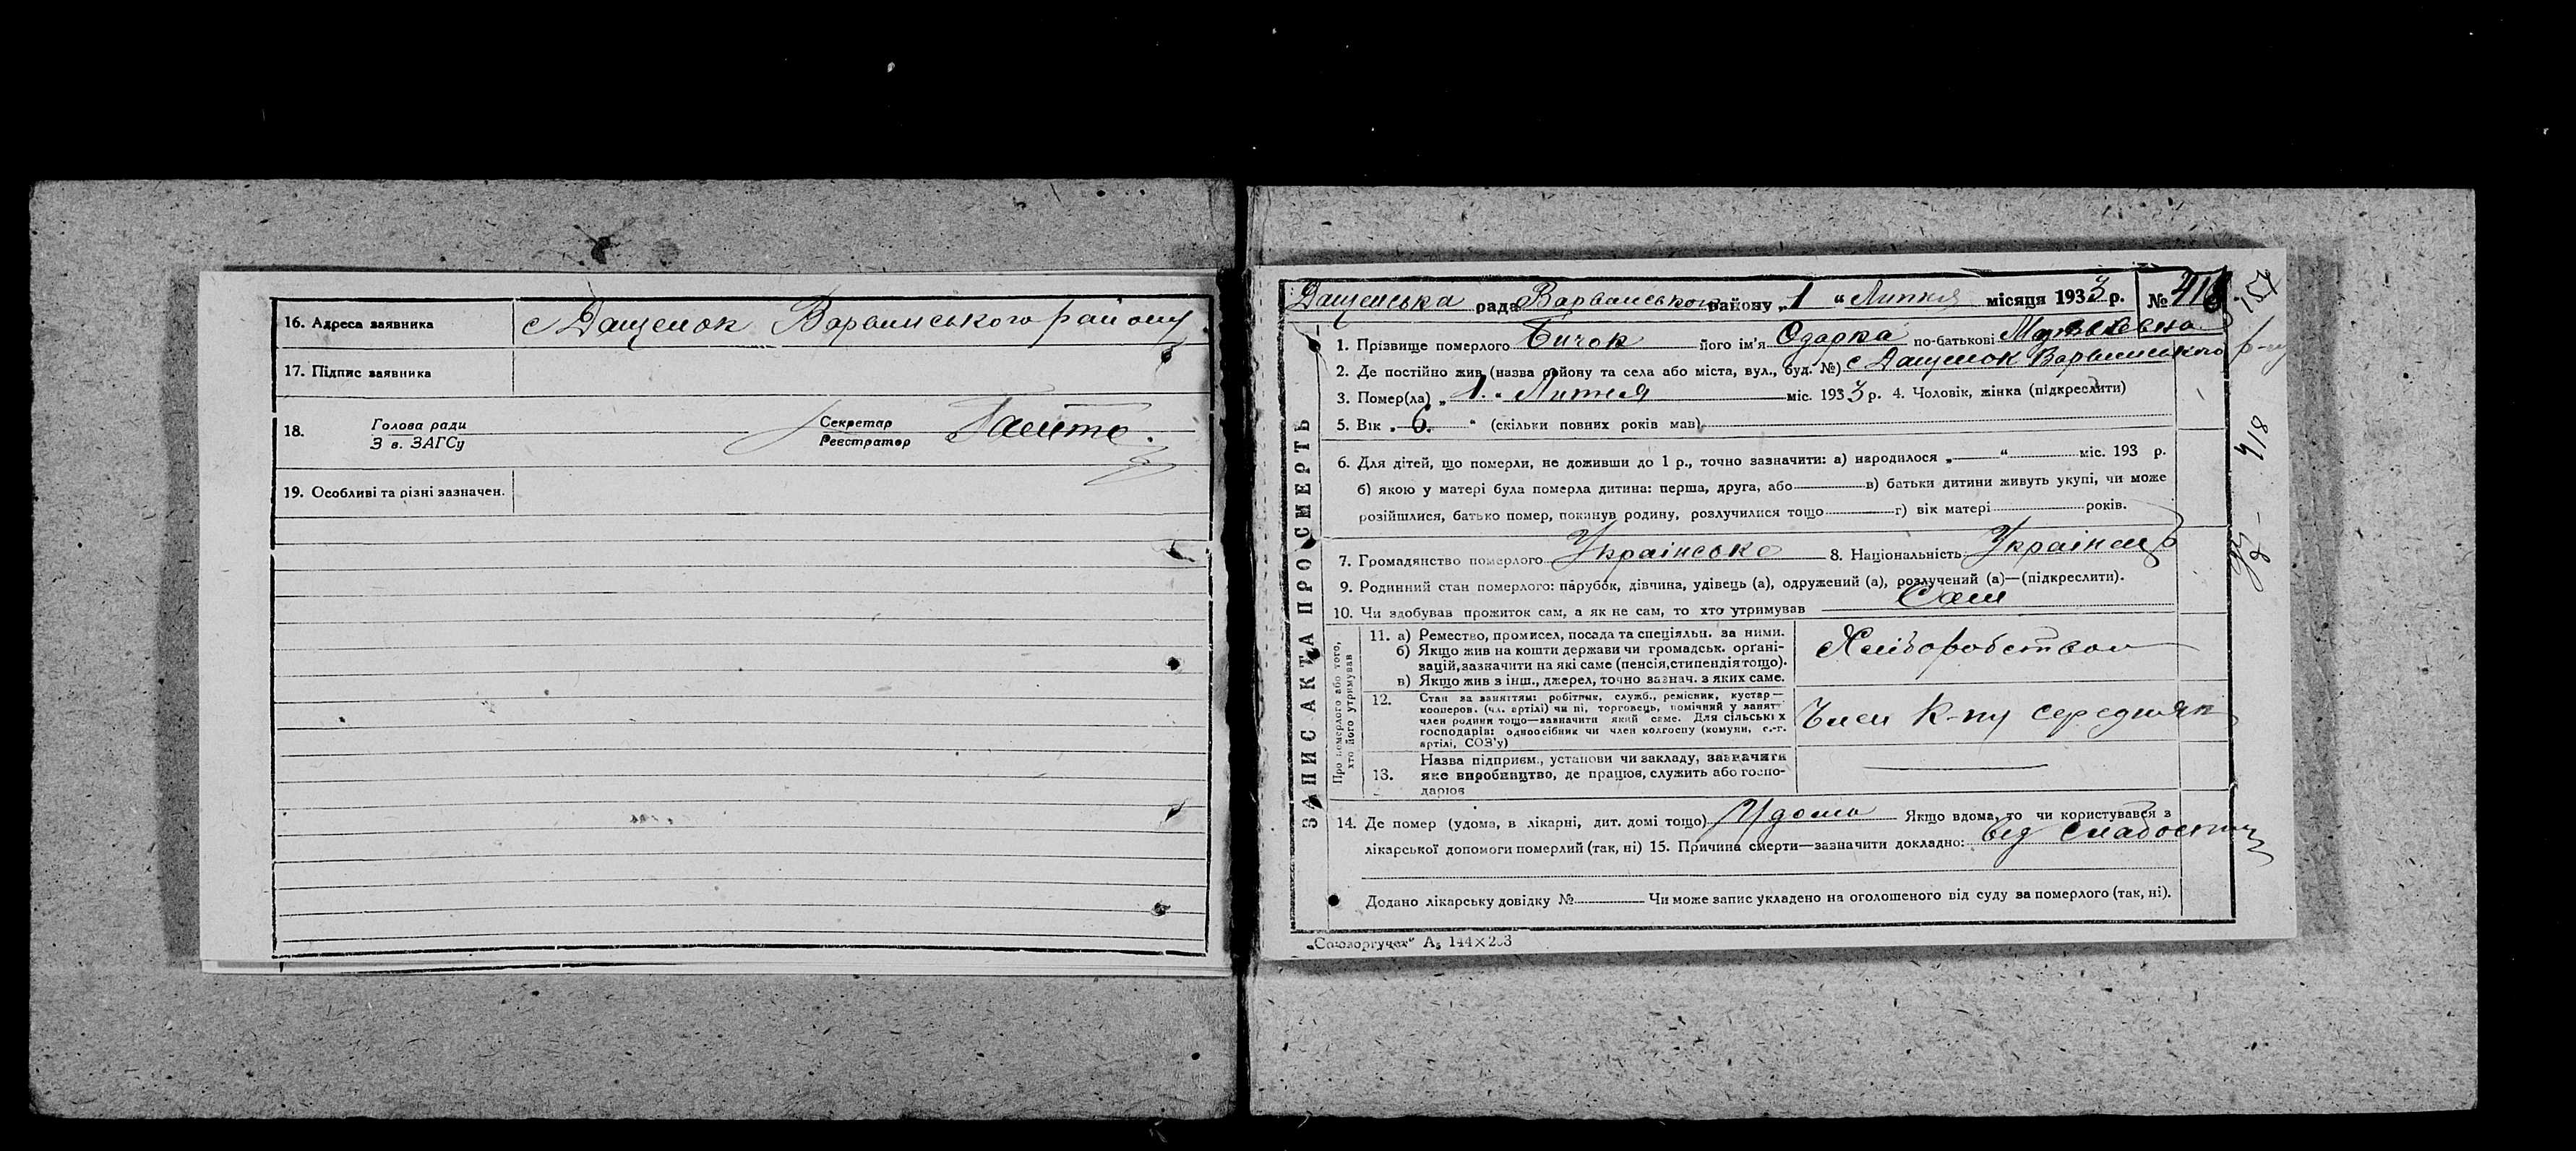 16. Адреса заявника с Дащенок Варвинського району
17. Підпис заявника
18. Голова ради Секретар
З в. ЗАГСу Реєстратор
19. Особливі та різні зазначен.
Дащенська рада Варвинського району „1“ Липня місяця 1933 р. №
1. Прізвище померлого Бичок його ім'я Одарка по-батькові
2. Де постійно жив (назва району та села або міста, вул., буд. №) с Дащенок Варвинського р-ну
3. Помер(ла) „1.“ Липня міс. 1933 р. 4. Чоловік, жінка (підкреслити)
5. Вік „6.“ (скільки повних років мав)
6. Для дітей, що померли, не доживши до 1 р., точно зазначити: а) народилося „ “ міс. 193 р.
б) якою у матері була померла дитина: перша, друга, або в) батьки дитини живуть укупі, чи може
розійшлися, батько помер, покинув родину, розлучилися тощо г) вік матері років.
7. Громадянство померлого Українське 8. Національність Українець
9. Родинний стан померлого: парубок, дівчина, удівець (а), одружений (а), розлучений (а)—(підкреслити).
10. Чи здобував прожиток сам, а як не сам, то хто утримував Сам
ЗАПИС АКТА ПРО СМЕРТЬ
Про померлого або того,
хто його утримував
11. а) Ремество, промисел, посада та спеціяльн. за ними.
б) Якщо жив на кошти держави чи громадськ. орґані-
зацій, зазначити на які саме (пенсія, стипендія тощо).
в) Якщо жив з інш., джерел, точно зазнач. з яких саме.
Хліборобством
12. Стан за заняттям: робітник, служб., ремісник, кустар—
кооперов. (чл. артілі) чи ні, торговець, помічний у занятт
член родини тощо—зазначити який саме. Для сільських
господарів: одноосібник чи член колгоспу (комуни, с.-г.
артілі, СОЗ'у)
Член к-пу середняк
13. Назва підприєм., установи чи закладу, зазначити
яке виробництво, де працює, служить або госпо-
дарює
14. Де помер (удома, в лікарні, дит. домі тощо) Удома Якщо вдома, то чи користувався з
лікарської допомоги померлий (так, ні) 15. Причина смерти—зазначити докладно: від слабости
Додано лікарську довідку № Чи може запис укладено на оголошеного від суду за померлого (так, ні).
„Союзоргучет“ А₅ 144×203
418